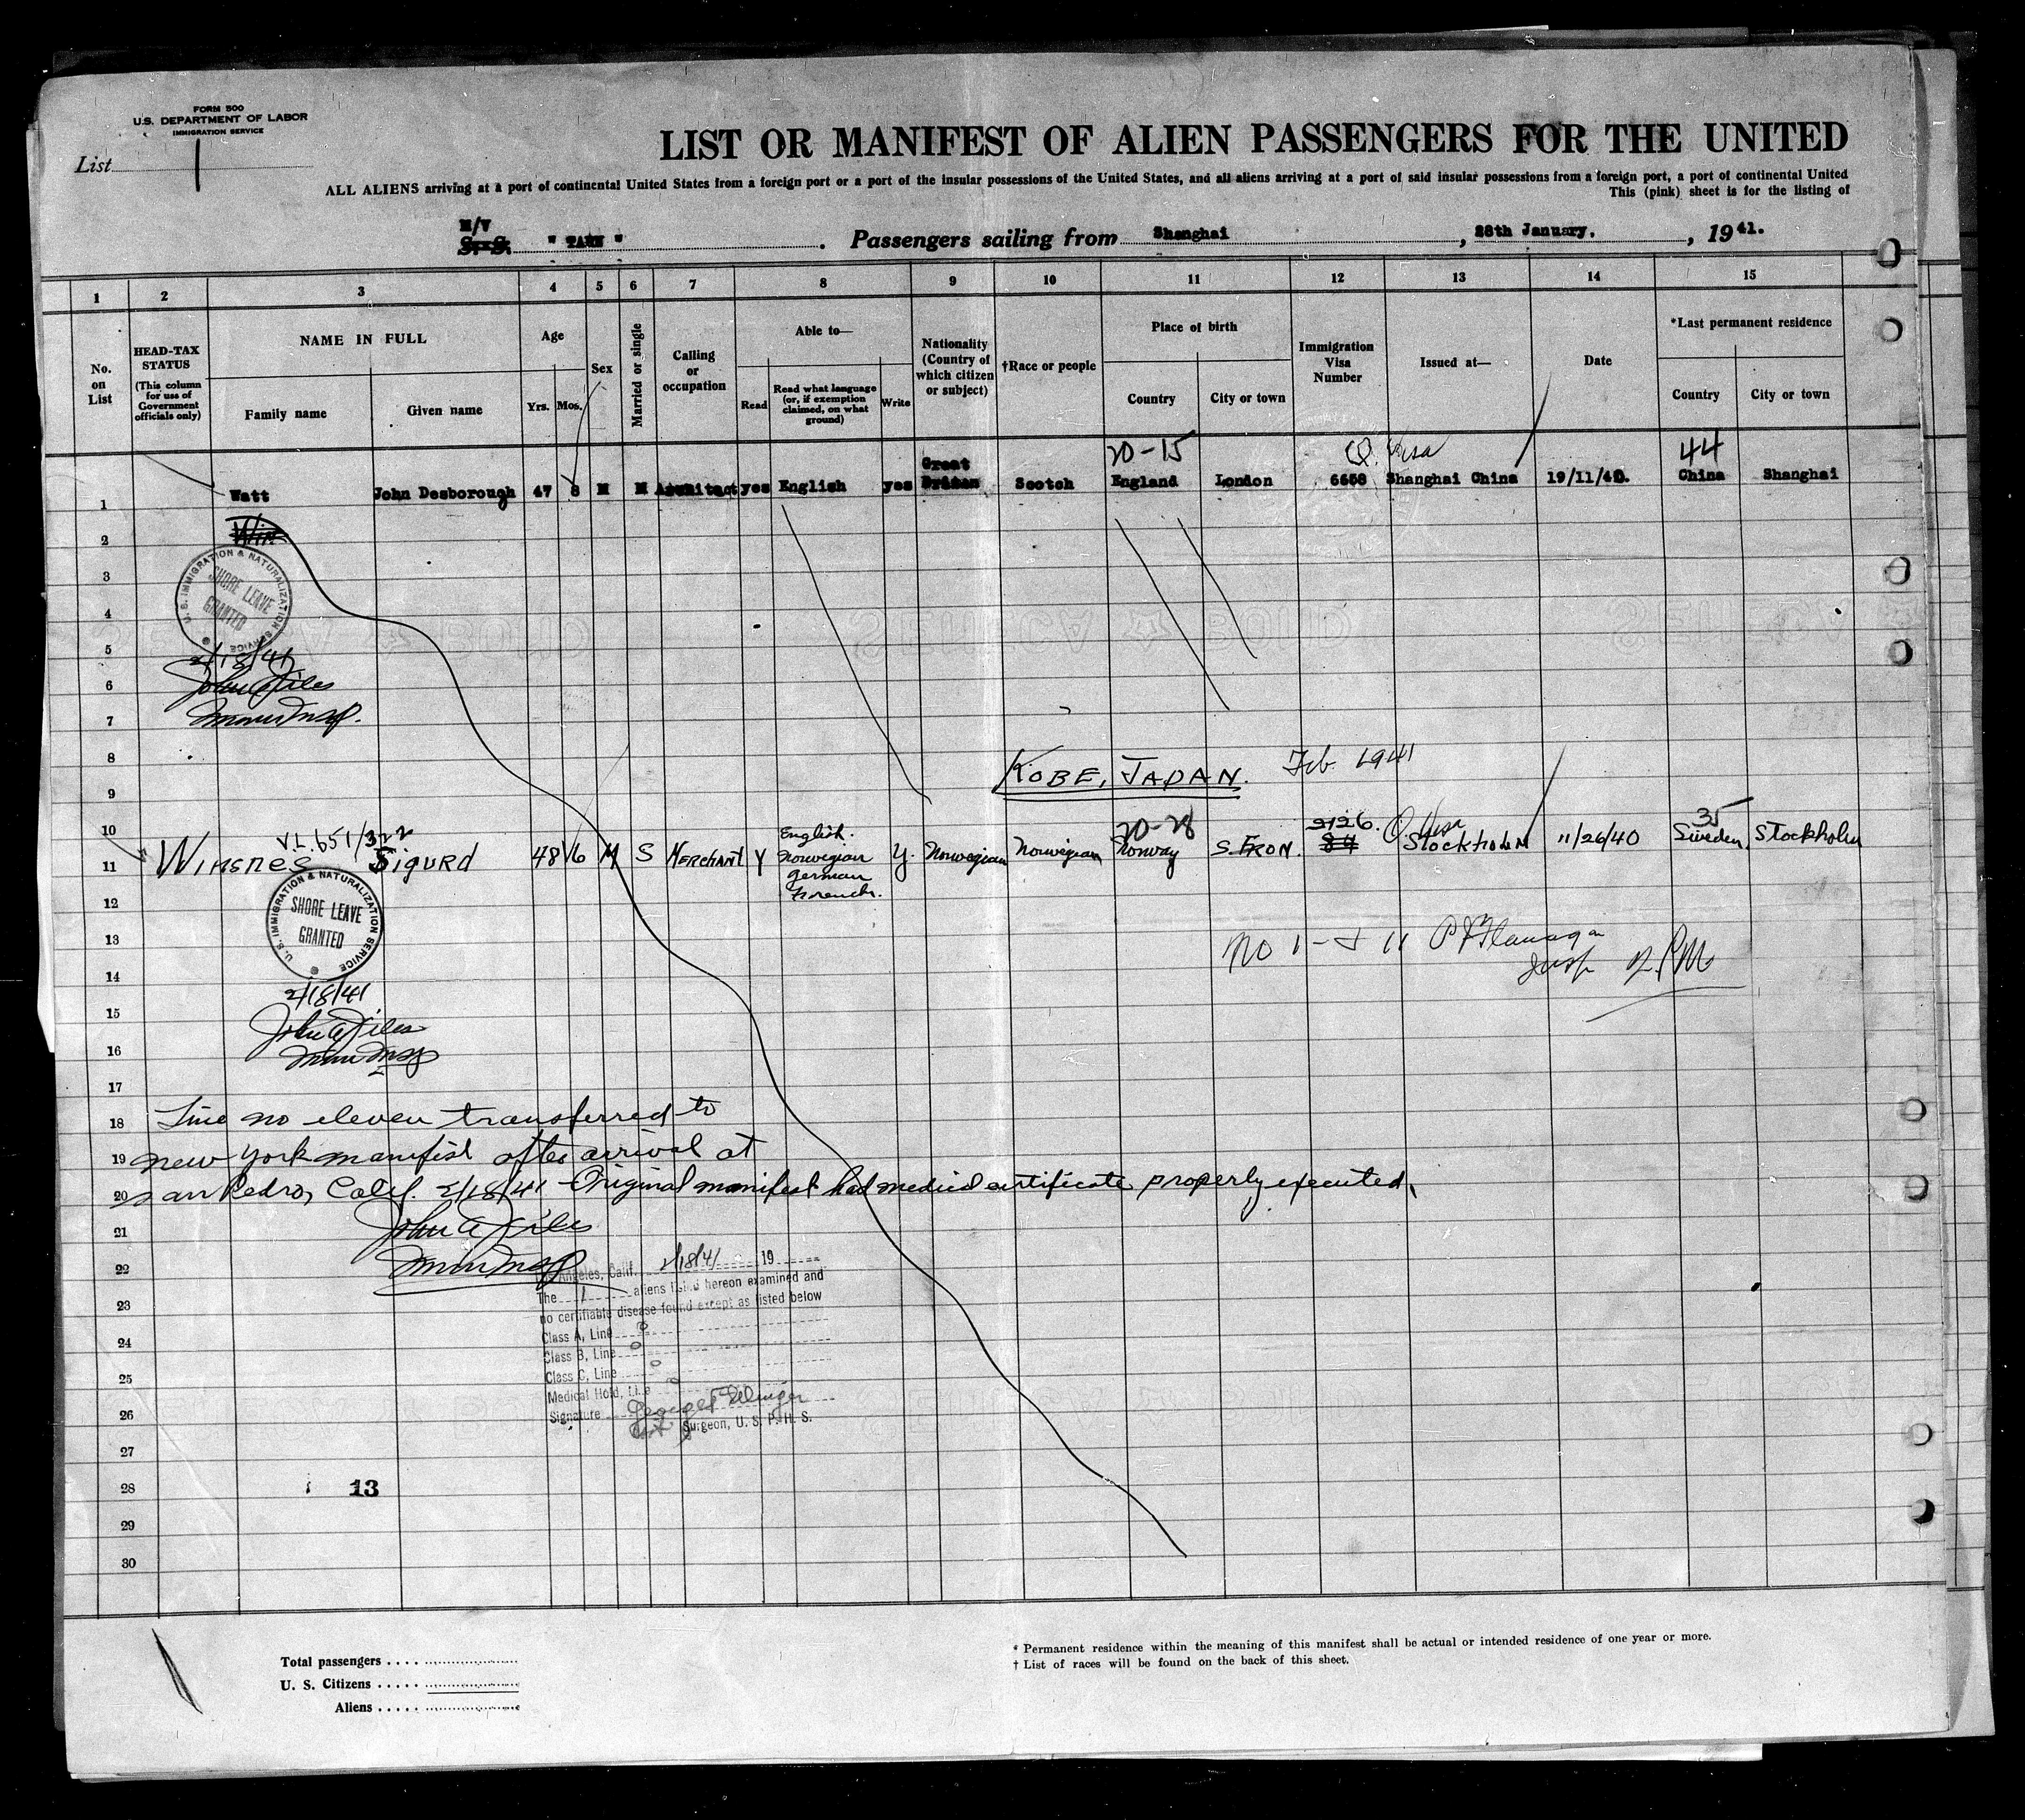 FORM 500
U.S. DEPARTMENT OF LABOR
IMMIGRATION SERVICE
List 1
LIST OR MANIFEST OF ALIEN PASSENGERS FOR THE UNITED
ALL ALIENS arriving at a port of continental United States from a foreign port or a port of the insular possessions of the United States, and all aliens arriving at a port of said insular possessions from a foreign port, a port of continental United
This (pink) sheet is for the listing of
M/V
S. S. " " Passengers sailing from Shanghai, 28th January., 1941.
1 2 3 4 5 6 7 8 9 10 11 12 13 14 15
No. on List
HEAD-TAX STATUS
(This column for use of Government officials only)
NAME IN FULL
Family name
Given name
Age
Yrs. Mos.
Sex
Married or single
Calling or occupation
Able to—
Read
Read what language (or, if exemption claimed, on what ground)
Write
Nationality (Country of which citizen or subject)
†Race or people
Place of birth
Country
City or town
Immigration Visa Number
Issued at—
Date
*Last permanent residence
Country
City or town
20-15 Q. Visa 44
1 Watt John Desborough 47 8 M M Architect yes English yes Great Britain Scotch England London 6658 Shanghai China 19/11/40. China Shanghai
2 Win
3
4
U. S. IMMIGRATION & NATURALIZATION SERVICE
SHORE LEAVE
GRANTED
5
2/18/41
6 John A Files
7
8
KOBE, JAPAN. Feb. 1941
9
10 V.L. 651/322 20-28 2126. Q. Visa 35
11 Winsnes Sigurd 48 6 M S Merchant Y English. Norwegian German French. Y. Norwegian Norwegian Norway S. FRON. Stockholm 11/26/40 Sweden. Stockholm
12
U. S. IMMIGRATION & NATURALIZATION SERVICE
SHORE LEAVE
GRANTED
13 No 1 - & 11 P F Flanagan
14 Insp
2/18/41
15 John A Files
16
17
18 Line no eleven transferred to
19 New York manifest after arrival at
20 San Pedro, Calif. 2/18/41 - Original manifest had medical certificate properly executed.
21 John A Files
22
Angeles, Calif. 2/18/41 19
The 1 aliens listed hereon examined and
23
no certifiable disease found except as listed below
Class A, Line 0
24
Class B, Line 0
Class C, Line 0
25
Medical Hold, Line 0
26
Signature
Surgeon, U. S. P. H. S.
27
28 13
29
30
Total passengers
U. S. Citizens
Aliens
* Permanent residence within the meaning of this manifest shall be actual or intended residence of one year or more.
† List of races will be found on the back of this sheet.